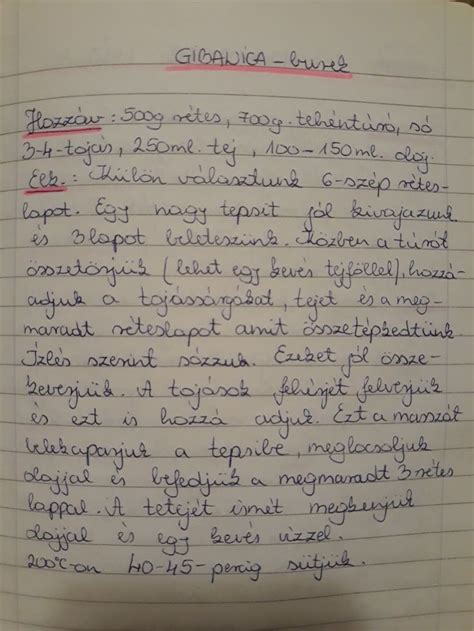 GIBANICA - burek
Hozzáv: 500g rétes, 700g. tehéntúró, só
3-4-tojás, 250ml. tej, 100-150ml. olaj.
Elk.: Külön választunk 6-szép rétes-
lapot. Egy nagy tepsit jól kivajazunk
és 3 lapot beleteszünk. Közben a túrót
összetörjük (lehet egy kevés tejföllel), hozzá-
adjuk a tojássárgákat, tejet és a meg-
maradt réteslapot amit összetépkedtünk.
Ízlés szerint sózzuk. Ezeket jól össze-
keverjük. A tojások fehérjét felverjük
és ezt is hozzá adjuk. Ezt a masszát
belekaparjuk a tepsibe, meglocsoljuk
olajjal és befedjük a megmaradt 3 rétes
lappal. A tetejét ismét megkenjük
olajjal és egy kevés vízzel.
200°C-on 40-45-percig sütjük.